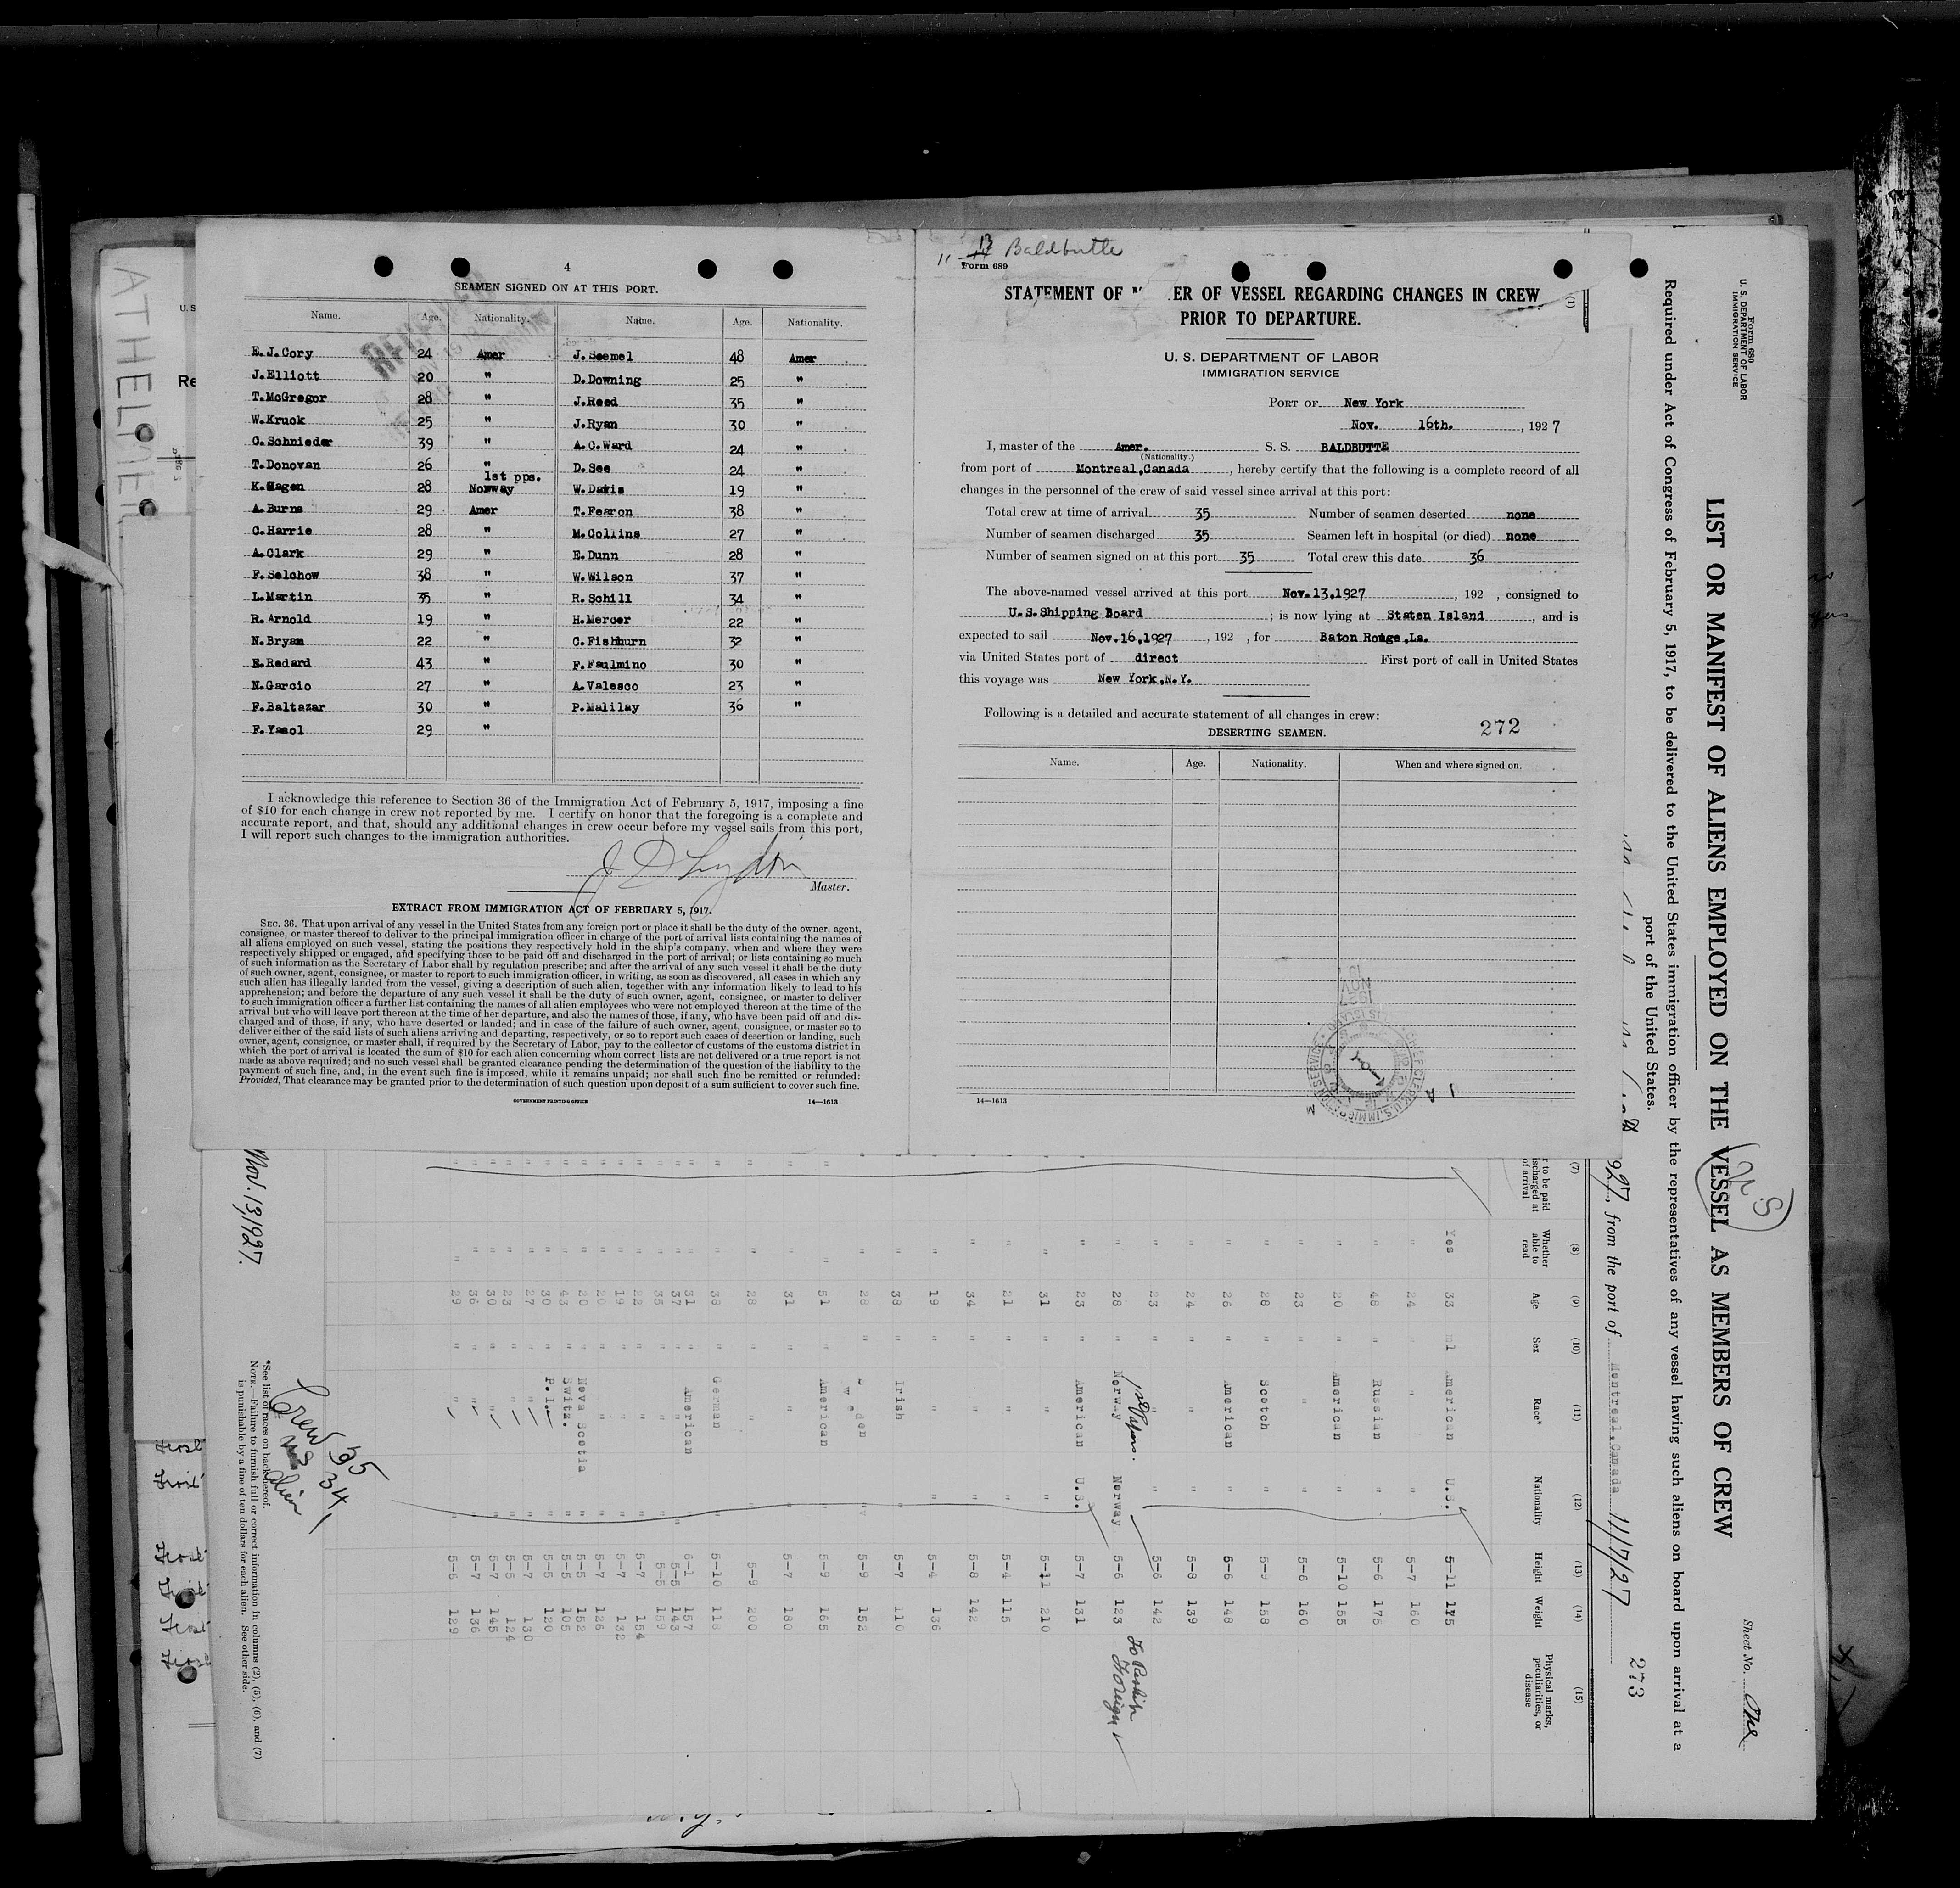 4
SEAMEN SIGNED ON AT THIS PORT.
Name. Age. Nationality. Name. Age. Nationality.
E.J.Cory 24 Amer J. Seemel 48 Amer
J.Elliott 20 " D.Downing 25 "
T.McGregor 28 " J.Reed 35 "
W.Kruck 25 " J.Ryan 30 "
C.Schnieder 39 " A.C.Ward 24 "
T.Donovan 26 " D.See 24 "
1st pps.
K.Hagen 28 Norway W.Davis 19 "
A.Burns 29 Amer T.Fearon 38 "
C.Harrie 28 " M.Collins 27 "
A.Clark 29 " E.Dunn 28 "
F.Selchow 38 " W.Wilson 37 "
L.Martin 35 " R.Schill 34 "
R.Arnold 19 " H.Mercer 22 "
N.Bryan 22 " C.Fishburn 32 "
E.Redard 43 " F.Faulmino 30 "
N.Garcio 27 " A.Valesco 23 "
F.Baltazar 30 " P.Malilay 36 "
F.Yasol 29 "
I acknowledge this reference to Section 36 of the Immigration Act of February 5, 1917, imposing a fine
of $10 for each change in crew not reported by me. I certify on honor that the foregoing is a complete and
accurate report, and that, should any additional changes in crew occur before my vessel sails from this port,
I will report such changes to the immigration authorities.
Master.
EXTRACT FROM IMMIGRATION ACT OF FEBRUARY 5, 1917.
SEC. 36. That upon arrival of any vessel in the United States from any foreign port or place it shall be the duty of the owner, agent,
consignee, or master thereof to deliver to the principal immigration officer in charge of the port of arrival lists containing the names of
all aliens employed on such vessel, stating the positions they respectively hold in the ship's company, when and where they were
respectively shipped or engaged, and specifying those to be paid off and discharged in the port of arrival; or lists containing so much
of such information as the Secretary of Labor shall by regulation prescribe; and after the arrival of any such vessel it shall be the duty
of such owner, agent, consignee, or master to report to such immigration officer, in writing, as soon as discovered, all cases in which any
such alien has illegally landed from the vessel, giving a description of such alien, together with any information likely to lead to his
apprehension; and before the departure of any such vessel it shall be the duty of such owner, agent, consignee, or master to deliver
to such immigration officer a further list containing the names of all alien employees who were not employed thereon at the time of the
arrival but who will leave port thereon at the time of her departure, and also the names of those, if any, who have been paid off and dis-
charged and of those, if any, who have deserted or landed; and in case of the failure of such owner, agent, consignee, or master so to
deliver either of the said lists of such aliens arriving and departing, respectively, or so to report such cases of desertion or landing, such
owner, agent, consignee, or master shall, if required by the Secretary of Labor, pay to the collector of customs of the customs district in
which the port of arrival is located the sum of $10 for each alien concerning whom correct lists are not delivered or a true report is not
made as above required; and no such vessel shall be granted clearance pending the determination of the question of the liability to the
payment of such fine, and, in the event such fine is imposed, while it remains unpaid; nor shall such fine be remitted or refunded:
Provided, That clearance may be granted prior to the determination of such question upon deposit of a sum sufficient to cover such fine.
GOVERNMENT PRINTING OFFICE 14—1613
13
11 Baldbutte
Form 689
STATEMENT OF ER OF VESSEL REGARDING CHANGES IN CREW
PRIOR TO DEPARTURE.
U. S. DEPARTMENT OF LABOR
IMMIGRATION SERVICE
PORT OF New York
Nov. 16th. , 1927
I, master of the Amer. S. S. BALDBUTTE
(Nationality.)
from port of Montreal,Canada , hereby certify that the following is a complete record of all
changes in the personnel of the crew of said vessel since arrival at this port:
Total crew at time of arrival 35 Number of seamen deserted none
Number of seamen discharged 35 Seamen left in hospital (or died) none
Number of seamen signed on at this port 35 Total crew this date 36
The above-named vessel arrived at this port Nov.13,1927 , 192 , consigned to
U.S.Shipping Board ; is now lying at Staten Island , and is
expected to sail Nov.16,1927 , 192 , for Baton Rouge,La.
via United States port of direct First port of call in United States
this voyage was New York,N.Y.
Following is a detailed and accurate statement of all changes in crew:
272
DESERTING SEAMEN.
Name. Age. Nationality. When and where signed on.
14—1613
ATHELMER
Form 680
U. S. DEPARTMENT OF LABOR
IMMIGRATION SERVICE
Sheet No. One
LIST OR MANIFEST OF ALIENS EMPLOYED ON THE VESSEL AS MEMBERS OF CREW
Required under Act of Congress of February 5, 1917, to be delivered to the United States immigration officer by the representatives of any vessel having such aliens on board upon arrival at a
port of the United States.
927, from the port of Montreal,Canada 11/7/27
273
(7) (8) (9) (10) (11) (12) (13) (14) (15)
Whether able to read Age Sex Race* Nationality Height Weight Physical marks, peculiarities, or disease
Yes 33 ml American U.S. 5-11 175
" 24 " " " 5-7 160
" 48 " Russian " 5-6 175
" 20 " American " 5-10 155
" 23 " " " 5-6 160
" 28 " Scotch " 5-9 158
" 26 " American " 5-6 148
" 24 " " 5-8 139
" 23 " " " 5-6 142
1st Papers.
" 28 " Norway Norway 5-6 123 To Reship Foreign
" 23 " American U.S. 5-7 131
" 31 " " " 5-11 210
" 21 " " " 5-4 115
" 34 " " " 5-8 142
" 19 " " " 5-4 136
" 38 " Irish " 5-7 110
" 28 " Sweden " 5-9 152
" 51 " American " 5-9 165
" 31 " " 5-7 180
" 28 " " 5-9 200
" 38 " German 5-10 118
" 31 " American " 6-1 157
" 37 " " " 5-5 143
" 35 " " 5-5 159
" 22 " " " 5-7 154
" 19 " " " 5-7 132
" 20 " " " 5-7 126
" 20 " Nova Scotia " 5-5 152
" 43 " Switz. " 5-5 105
" 30 " P.I. " 5-5 120
" 27 " " 5-7 130
" 23 " " 5-5 124
" 30 " " 5-7 145
" 36 " " 5-7 136
" 29 " " " 5-6 129
Crew 35
US 34
Alien 1
Nov. 13, 1927.
*See list of races on back hereof.
NOTE.—Failure to furnish full or correct information in columns (2), (5), (6), and (7)
is punishable by a fine of ten dollars for each alien. See other side.